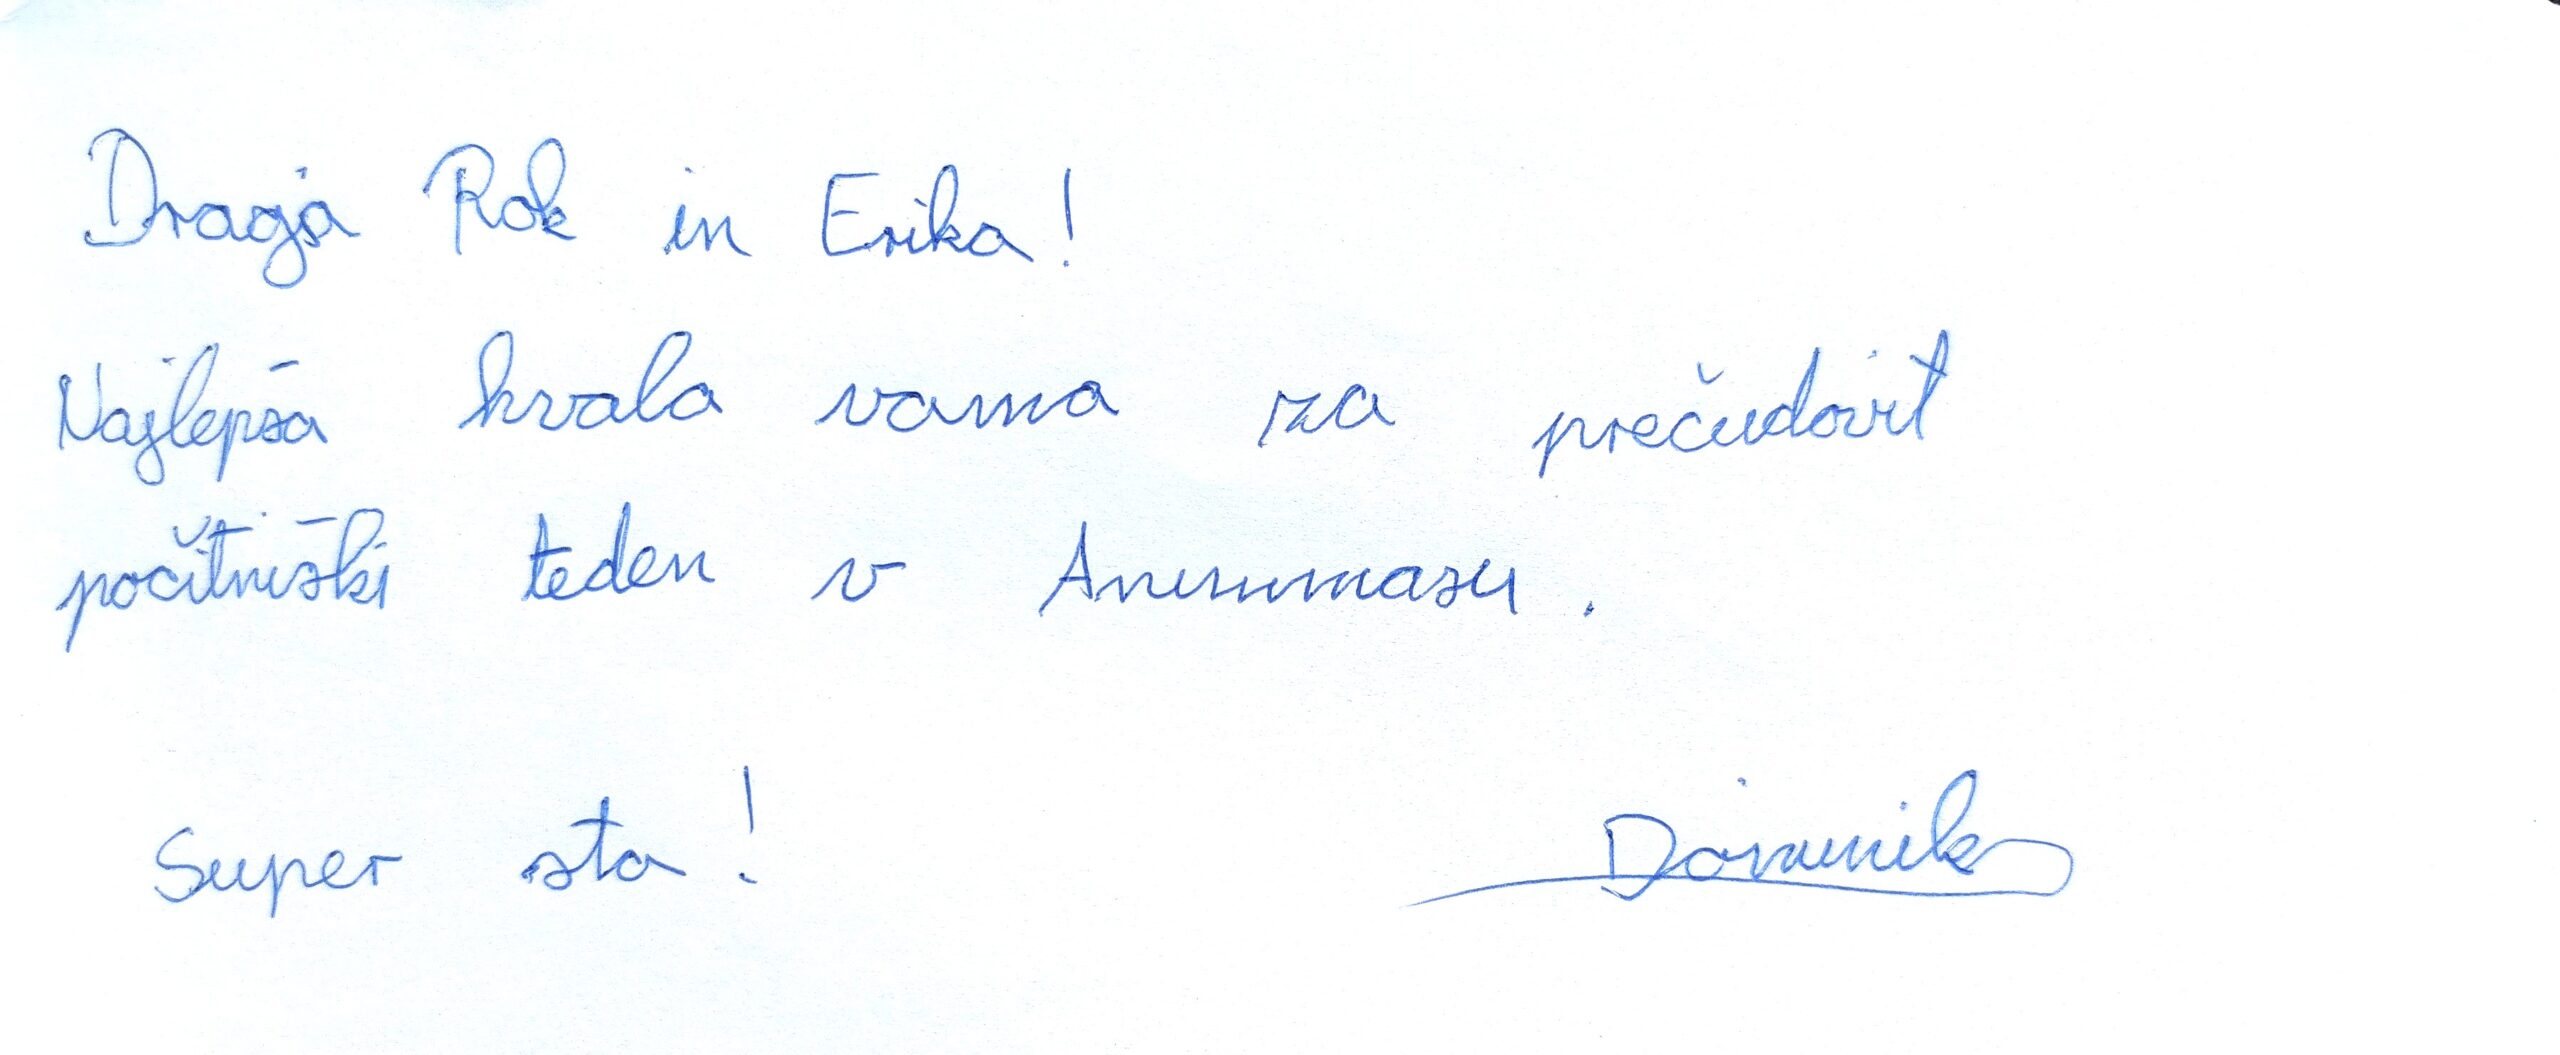 Draga Rok in Erika!
Najlepša hvala vama za prečudovit
počitniški teden v
Super sta!
Dominik